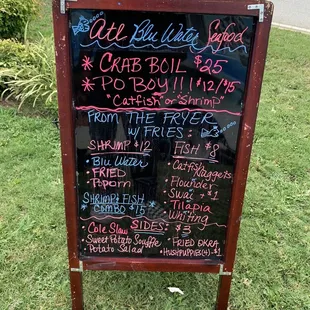 Atl Blue Water Seafood
* CRAB BOIL $25
* PO BOY!!! $12/$15
"Catfish" or "Shrimp"
FROM THE FRYER
w/ FRIES:
SHRIMP $12
• Blue Water
• FRIED
• Popcorn
* SHRIMP & FISH
COMBO $15 *
FISH $8
• Catfish
Nuggets
• Flounder
• Swai +$1
• Tilapia
• Whiting
SIDES: $3
• Cole Slaw
• Sweet Potato Souffle
• Potato Salad
• FRIED OKRA
• HUSHPUPPIES (4) - $1